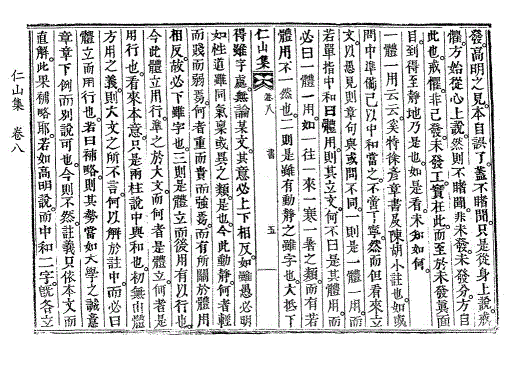 發高明之見本自誤了蓋不睹聞只是從身上說戒
懼方始從心上說然則不睹聞非未發未發分方自
此也戒懼非己發未發工實在此而至於未發眞面
目到得至靜地乃是也如是看未知如何
一體一用云云奚特徐彥章書及陳胡小註也如或
問中準儒己以中和當之不啻丁寧然而但看來立
文以愚見則章句與或問不同則是一體一用而
若單指中和曰體用則其立文何不曰是其體用而
必曰一體一用如一往一來一寒一暑之類而有若
體用不一然也二則是雖有動靜之雖字也大抵下
仁山集 卷八 書 五
得雖字處無論某文其意必上下相反如雖愚必明
如性道雖同氣稟或異之類是也今此動靜何者輕
而賤而弱焉何者重而貴而強焉而有所關於體用
相反故必下雖字也三則是體立而後用有以行也
今此體立用行準之於大文而何者是體立何者是
用行也看來本意只是兩柱說中與和也初無由體
方用之義則大文之所不言何以解於註中而必曰
體立而用行也若曰補略則其勢當如大學之誠意
章章下例而別說可也今則不然註義只依本文而
直解此果補略耶若如高明說而中和二字旣各立
仁山集 卷八